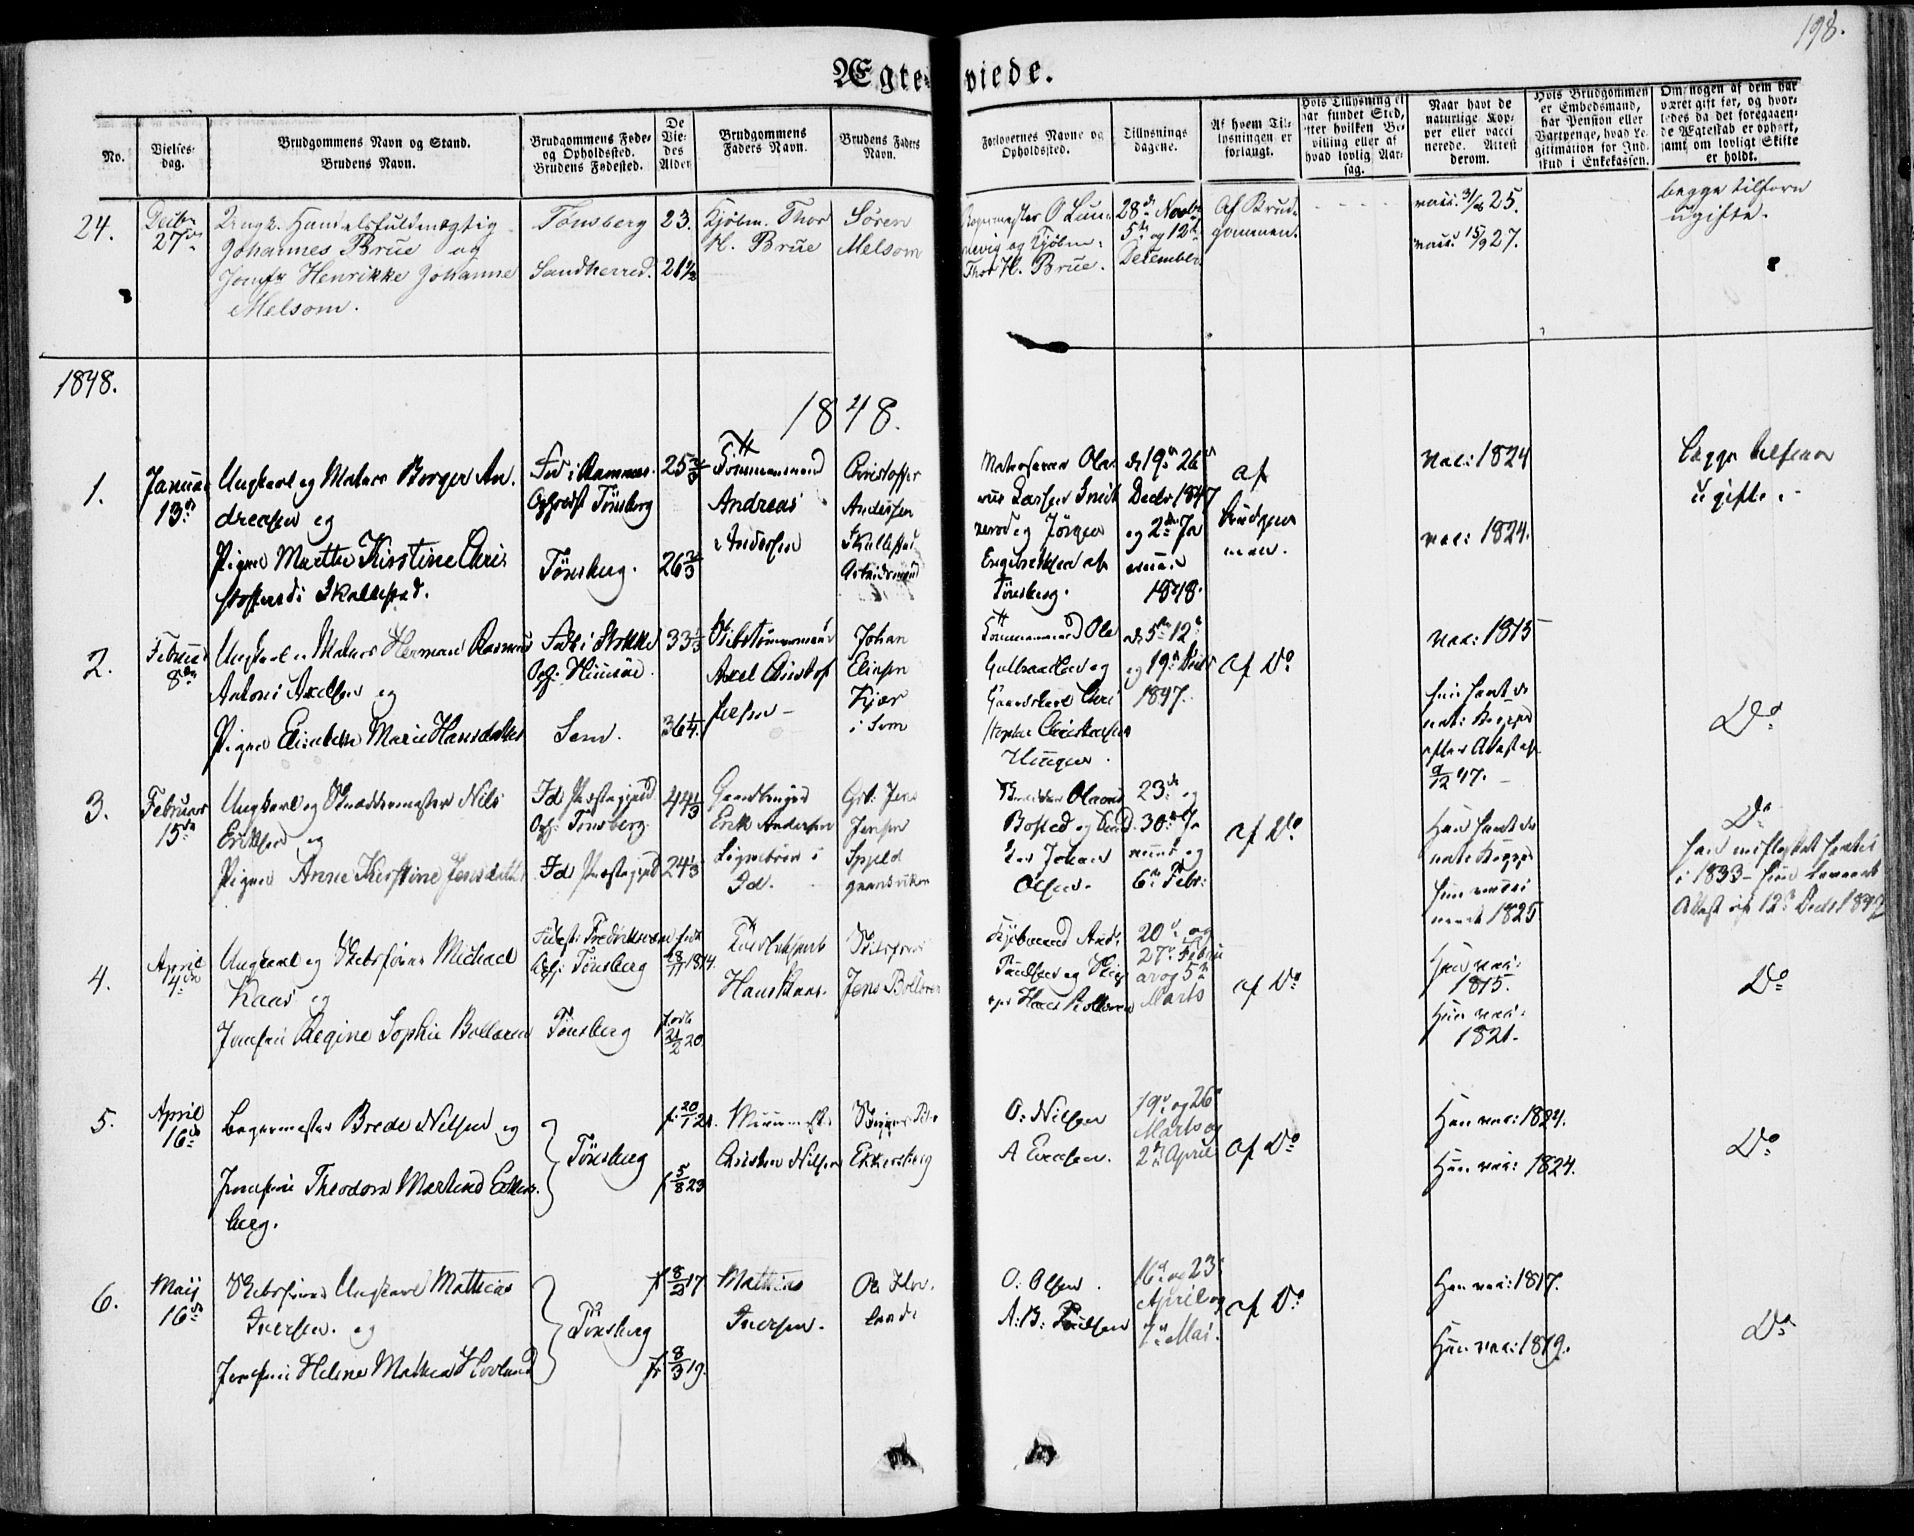 198.
Ægte-viede.
No.
Vielses-
dag.
Brudgommens Navn og Stand.
Brudens Navn.
Brudgommens Føde-
og Opholdssted.
Brudens Fødested.
De
Vie-
des
Alder
Brudgommens
Faders Navn.
Brudens Faders
Navn.
Forlovernes Navne og
Opholdssted.
Tillysnings
dagene.
Af hvem Til-
lysningen er
forlangt.
Hvis Tillysning ei
har fundet Sted,
efter hvilken Be-
villing eller af
hvad lovlig Aar-
sag.
Naar havt de
naturlige Kop-
per eller vacci
nerede. Attest
derom.
Hvis Brudgommen
er Embedsmand,
har Pension eller
Vartpenge, hvad Le-
gitimation for Ind-
skud i Enkekassen.
Om nogen af dem har
været gift før, og hvor-
ledes da det foregaaen-
de Ægteskab er ophørt,
samt om lovligt Skifte
er holdt.
24.
27de
Handelsfuldmægtig
Johannes Brue og
Jomfr Henrikke Johanne
Melsom.
Tønsberg
Sandherred.
23.
21½
Kjøbm. Thor
H. Brue
Søren
Melsom
O Lun
nevig og Kjøbm:
Thor H. Brue.
28de Novbr
5te og 12te
December
Af Brud-
gommen.
vacc. 3/6 25.
vacc. 15/9 27.
begge tilforn
ugifte.
1848.
1848.
1.
Januar
13de
Ungkarl og Matros Borger An-
dreasen og
Pigen Marthe Kirstine Chri
stoffersd: Skallestad.
Fød i Ramnes.
Opholdst Tönsberg
Tönsberg.
25 2/3
26 2/3
Tömmermand
Andreas
Andersen
Christoffer
Andersen
Skallestad
Arbeidsmand
Matroserne Ola
og Jörgen
Engebretsen af
Tönsberg.
d 19de 26de
Decbr 1847
og 2den Ja
nuar
1848.
af
Brudgom
men.
vac: 1824
vac: 1824.
begge tilforn
ugifte.
2.
Februar
8de
Ungkarl og Matros Herman Rasmus
Anton Axelsen og
Pigen Elisabeth Marie Hansdatter
Født i Stokke
Sem.
33 1/3
36 1/4
Skibstömmermand
Axel Christof
fersen
Johan
Kjær
i Sem
Tömmermand Ole
Gulbrandsen og
Gaardkarl Chri
stopher Christensen
d 5te 12te
og 19de Decbr
1847.
af Do
vac: 1815
hun havt de
nat: Kopper
efter Attest af
9/12 47.
Do
3.
Februar
15de
Ungkarl og Skræddermester Nils
Eriksen og
Pigen Anne Kirstine Jensdatter
Id Præstegjeld
Oph: Tönsberg
Id Præstegjeld
44 1/3
24 1/3
Gaardbruger
Erik Andersen
Id.
Grb: Jens
Jensen
Spjeld
gaardbruker
Olaves
Bosted og
Johan
Olsen.
23de og
30te Ja
nuar og
6te Febr:
af Do
Han havt de
nat: Kopper
hun vacci
neret 1825
Do
i 1833
Attest af 12te Decbr 1847
4.
April
4de
Ungkarl og Skibsfører Michael
Kaas og
Jomfru Regine Sophie Bolleren
Födest: Fredriksværn
Oph: Tönsberg
Tönsberg
født
28/11 1814.
født
21/2 20.
Hans Kaas.
Skibsfører
Jens Bolleren
Kjøbmand And:
Paulsen og
Hans Bolleren
20de og
27de Febru
ar og 5te
Marts
af Do
Han vac:
1815.
Hun vac:
1821.
Do
5.
April
16de
Bagermester Brede Nilsen og
Jomfru Theodora Martine Eckers-
berg.
Tönsberg
f. 20/1 21.
f 5/8 23
Christen Nilsen
Ekkersberg
O: Nilsen
A Evensen.
19de og 26de
Marts og
2den April
af Do
Han vac: 1824.
Hun vac: 1824.
Do
6.
Maij
16de
Skibsfører Ungkarl Mathias
Iversen. og
Jomfru Helene Mathea Hovland
Tönsberg
f 8/2 17
f 8/3 19.
Mathias
Iversen.
Ole Hov-
land
O: Olsen.
A: B: Paulsen
16de og 23de
April og
7de Mai.
af Do
Han vac: 1817.
Hun vac: 1819.
Do